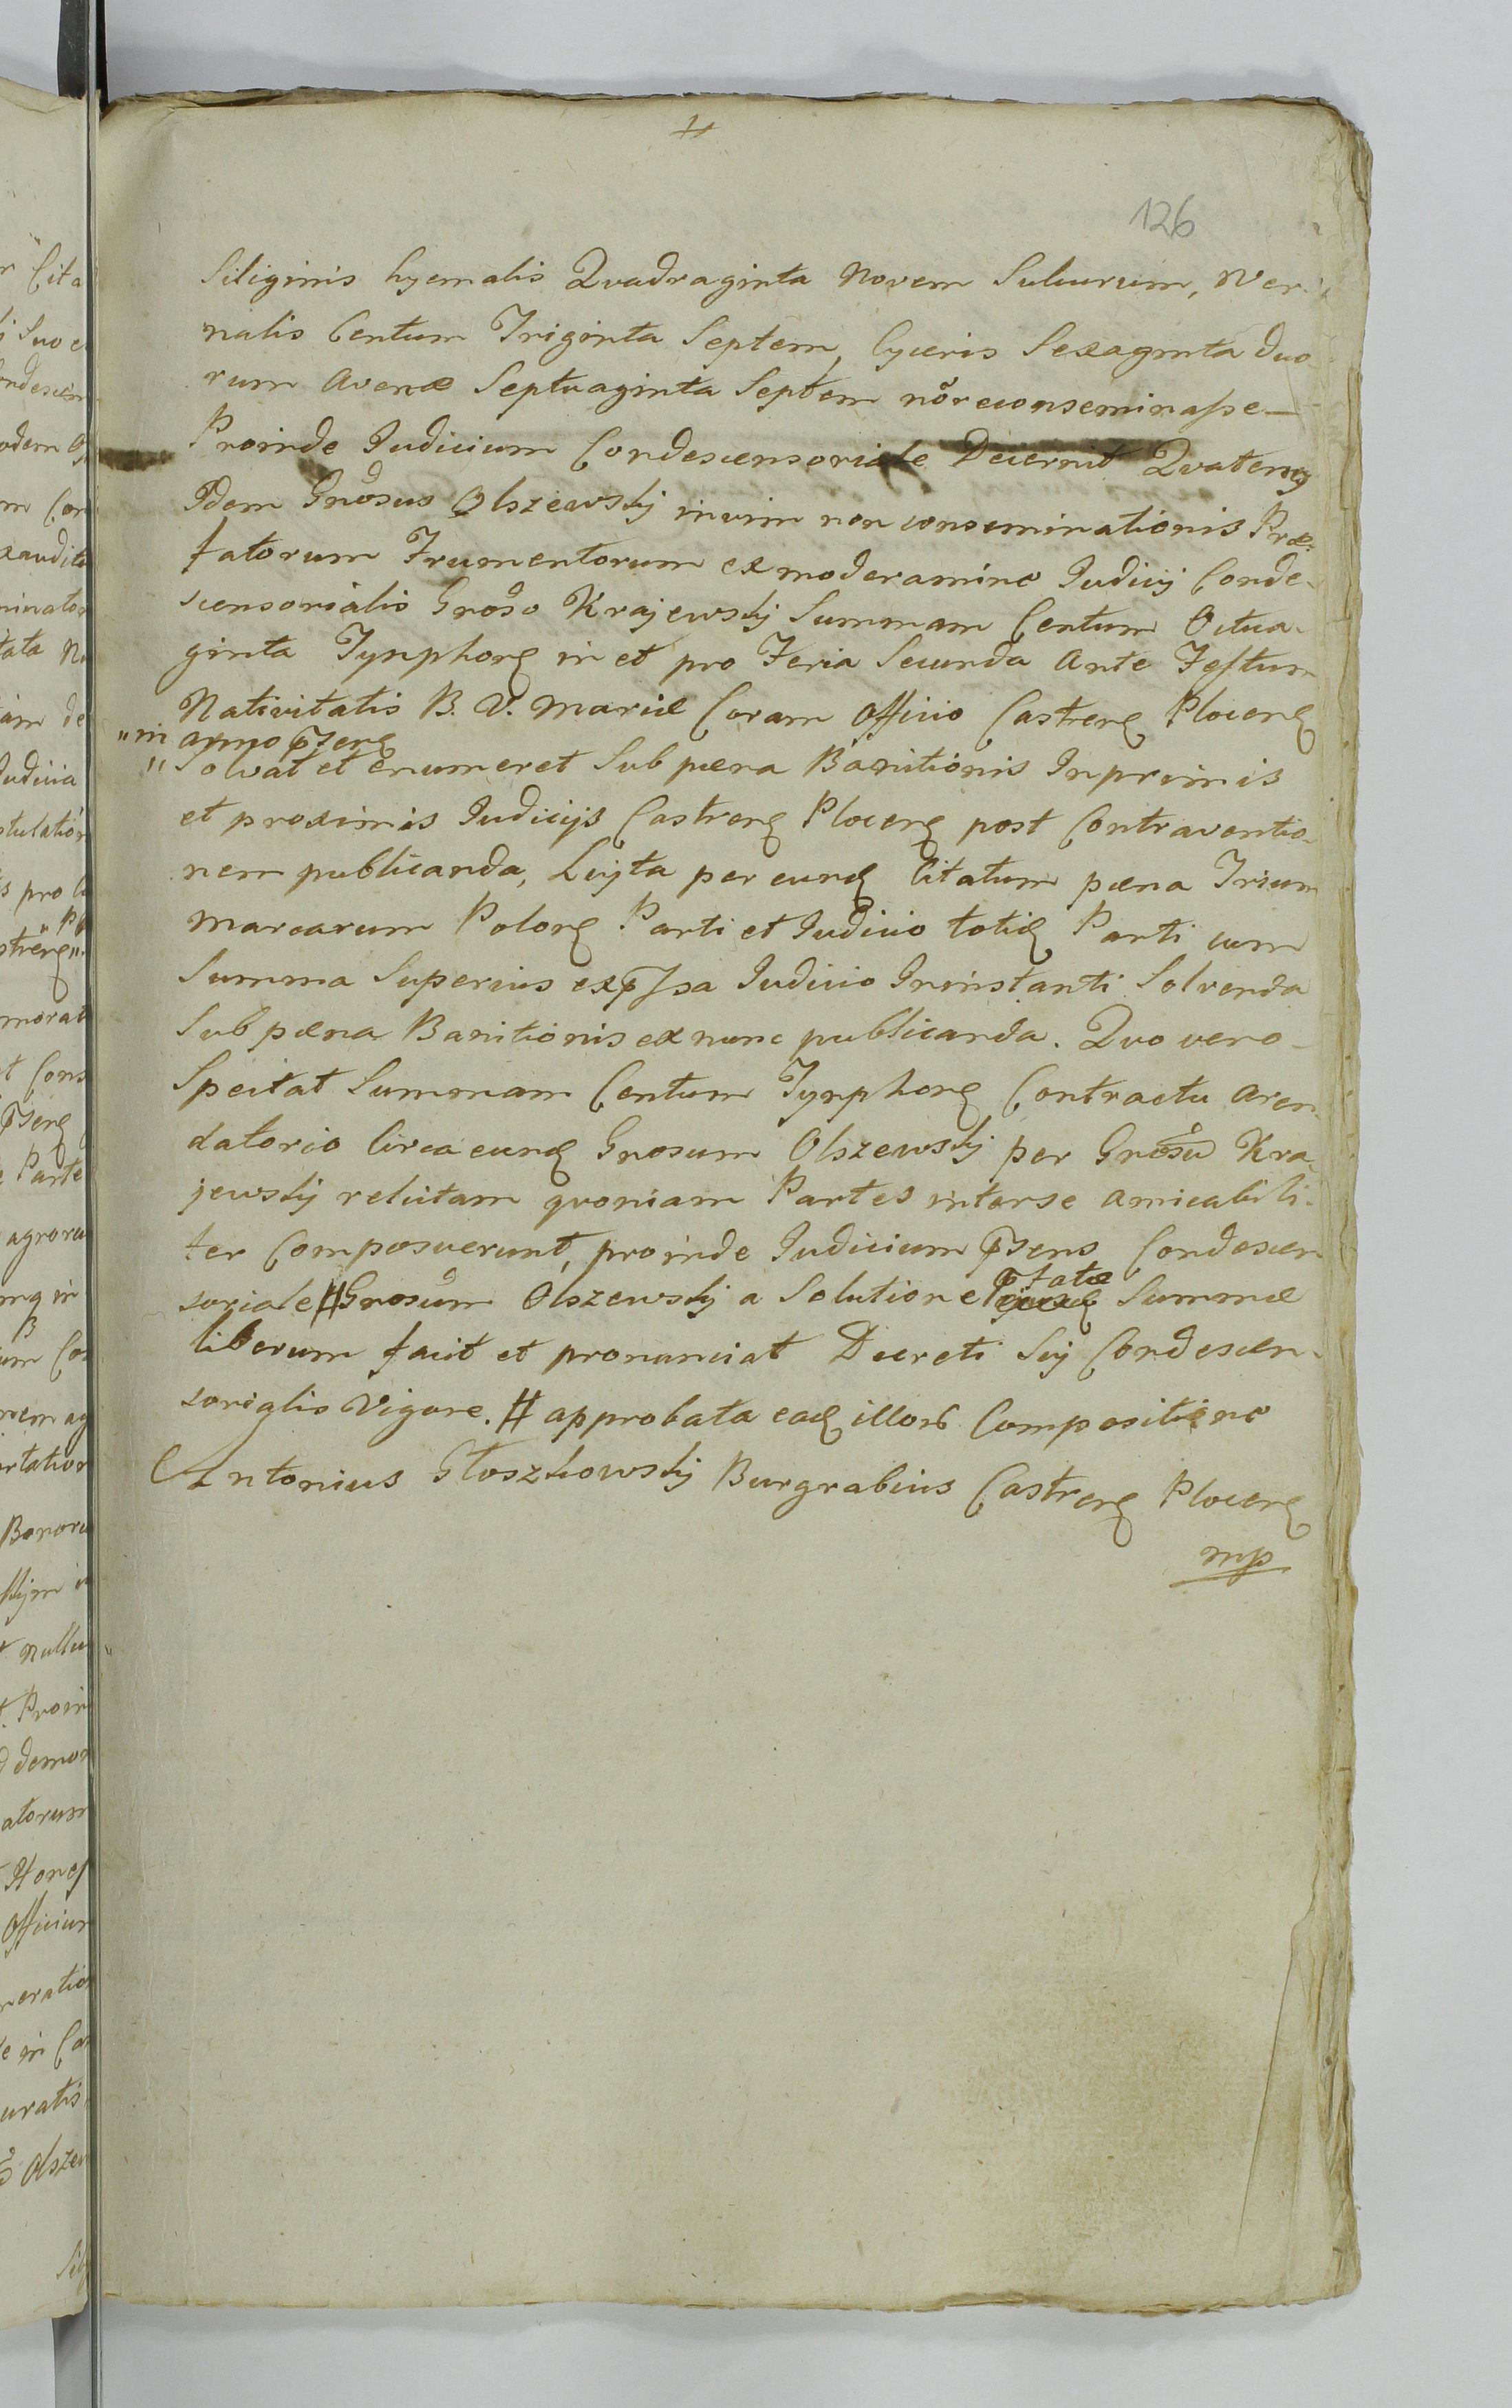 126
Siliginis hyemalis Quadraginta Novem Sulcurum, Ver-
nalis Centum Triginta Septem, Cyceris Sexaginta duo
rum Avenæ Septuaginta Septem nõ reconseminasse
Proinde Judicium Condescensoriale Decernit Quatenq
Idem Gnosus Olszewskij in vim non conseminationis Præ-
fatorum Frumentorum ex moderamine Judicij Conde-
scensorialis Groso Krajewskij Summam Centum Octua-
ginta Tynphorũ in et pro Feria Secunda Ante Festum
Nativitatis B. V. Mariæ Coram Officio Castren Plocen
"in anno Psen
" Solvat et enumeret Sub pæna Banitionis In primis
et proximis Judicijs Castren Plocen post Contraventio-
nem publicanda, Luijta per eund Citatum pæna Trium
Marcarum Polon Parti et Judicio totid Parti cum
Summa Superius expssa Judicio In instanti Solvenda
Sub pæna Banitionis ex nunc publicanda. Quo vero
Spectat Summam Centum Tynphor Contractu Aren
datorio Circa eund Gnosum Olszewskij per Grosũ Kra-
jewskij relictam quoniam Partes inter se amicabili-
ter Composuerunt, proinde Judicium Psens Condescen
soriale # Grosum Olszewskij a Solutione Pfatæ Summæ
liberum facit et pronunciat Decreti Sui Condescen-
sorialis Vigore. # approbata ead illor Compositione
Antonius Głoszkowskij Burgrabius Castren Plocen
mp